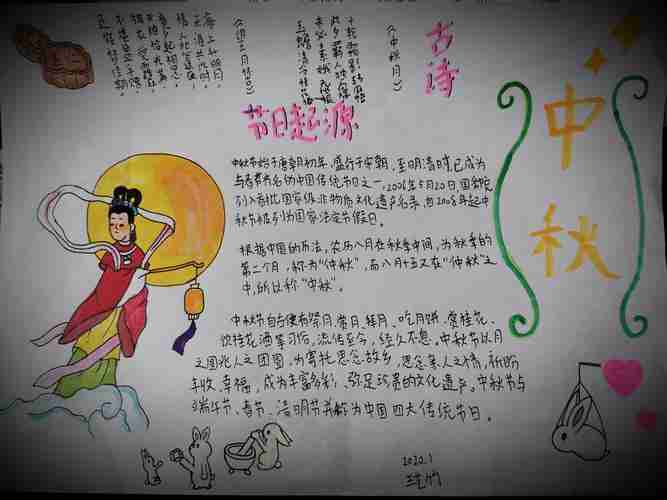 中秋
古诗
《中秋月》
《望月怀古》
海上升明月，
天涯共此时。
情人怨遥夜，
竟夕起相思。
灭烛怜光满，
披衣觉露滋。
不堪盈手赠，
还寝梦佳期。
节日起源
中秋节始于唐朝初年，盛行于宋朝，至明清时已成为
与春节齐名的中国传统节日之一，2006年5月20日，国务院
列入首批国家级非物质文化遗产名录，自2008年起中
秋节被列为国家法定节假日。
根据中国的历法，农历八月在秋季中间，为秋季的
第二个月，称为“仲秋”，而八月十五又在“仲秋”之
中，所以称“中秋”。
中秋节自古便有祭月、赏月、拜月、吃月饼、赏桂花、
饮桂花酒等习俗，流传至今，经久不息，中秋节以月
之圆兆人之团圆，为寄托思念故乡，思念亲人之情，祈盼
丰收、幸福，成为丰富多彩、弥足珍贵的文化遗产。中秋节与
端午节、春节、清明节并称为中国四大传统节日。
2020.1